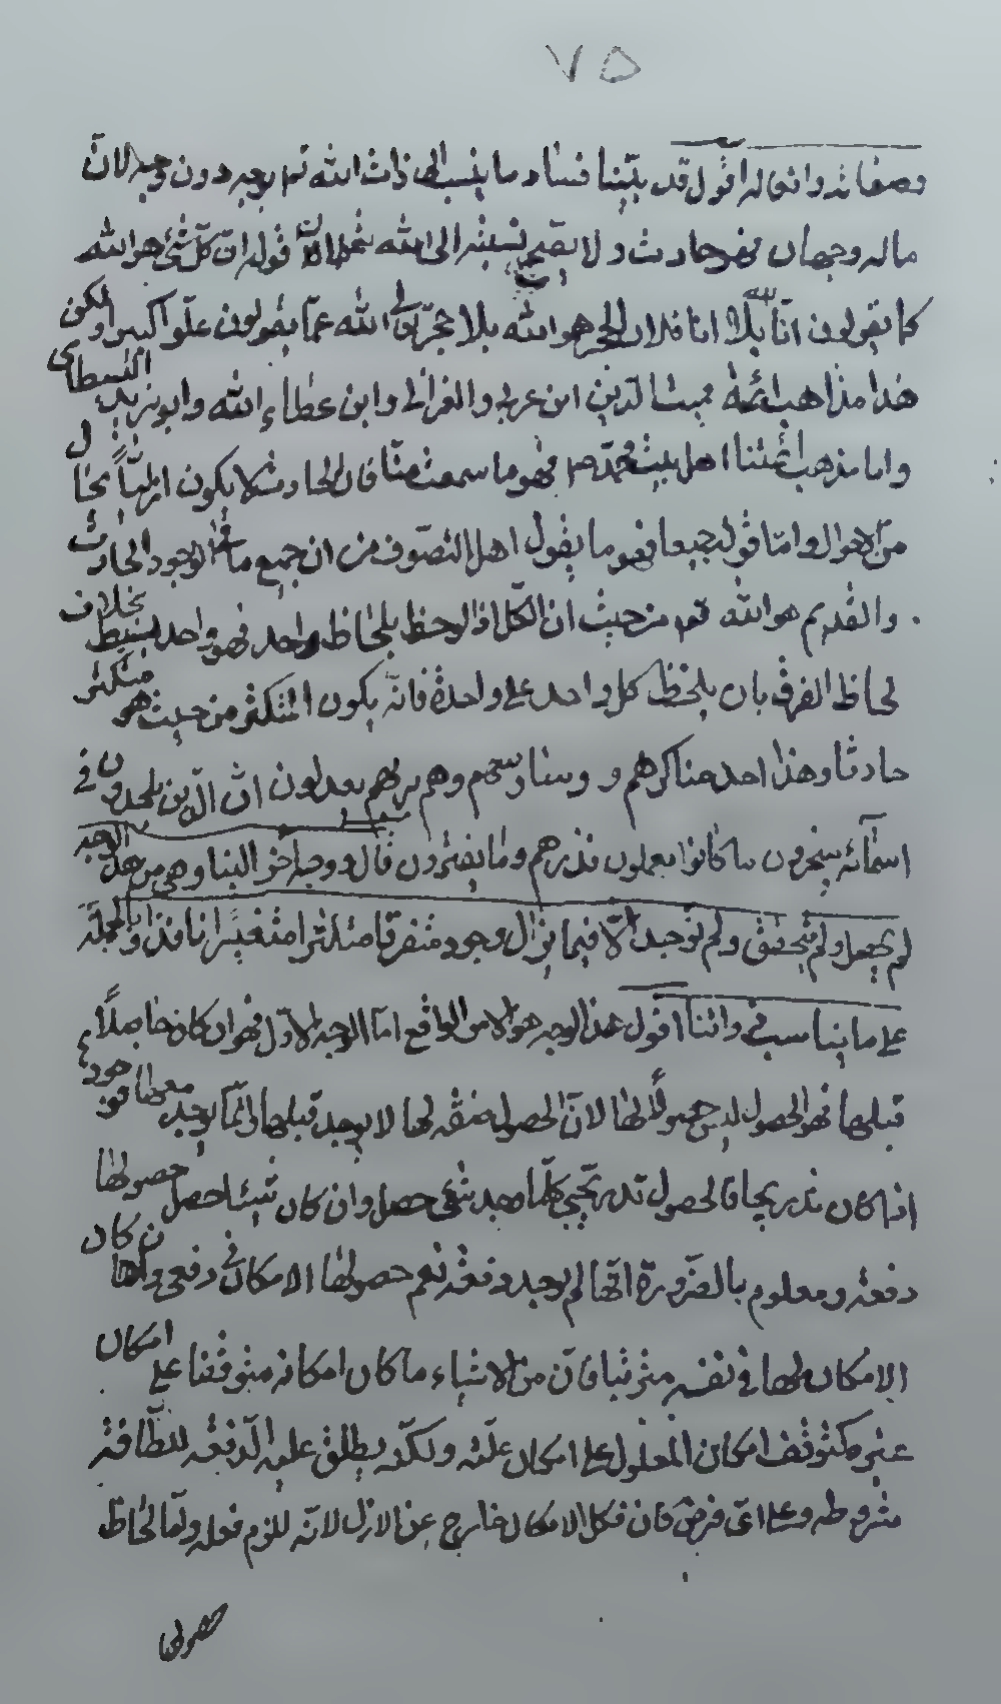 ٧٥
وصفاته وافعاله اقول قد بيّنا فساد ما ينسب الى ذات الله تعم بوجه دون وجه لانّ
ماله وجهان فهو حادث ولا يصح نسبته الى الله قوله انّ كلّ شئ هو الله
كما يقولون انا الله بلا انا فلان الحجر هو الله بلا حجر تعالى الله عمّا يقولون علوّا كبيرا ولكن
هذا مذاهب ائمة مميت الدين ابن عربي والغزالي وابن عطاء الله وابويزيد البسطامى
واما مذهب ائمّتنا اهل بيت محمّد ص فهو ما سمعت منّا فان الحادث لا يكون ازليّاً بحال
من الاحوال وامّا قوله جميعا فهو ما يقول اهل التصوّف من ان جميع ما في الوجود الحادث
والقديم هو الله تعم من حيث ان الكلّ اذا لوحظ بلحاظ واحد فهو واحد بسيط بخلاف
لحاظ الفرق بان يلحظ كل واحد على واحدة فانّه يكون المتكثر من حيث هو متكثر
حادثا وهذا احد مناكرهم و وساوسهم وهم بربّهم يعدلون انّ الّذين يلحدون في
اسمآئه سيجزون ما كانوا يعملون فذرهم وما يفترون قال ووجه اخر الينا وهي من هذا الوجه
لم يحصل ولم يتحقق ولم توجد الّا فيما يزال وجودا متفرقا متكثرا متغيّرا نافذا وبالجملة
على ما يناسب في واننا اقول هذا الوجه هو الامر الواقع امّا الوجه الاوّل فهو ان كان حاصلاً
قبلها فهو الحصول ليس حصولاً لها لانّ الحصول صفة لها لا يوجد قبلها وانّما يوجد معها فوجودها
اذا كان تدريجا فالحصول تدريجيّ كلّما وجد شئ حصل وان كان شيئا حصل حصولها
دفعة ومعلوم بالضّرورة انّها لم يوجد دفعة نعم حصولها الامكاني دفعي وان كان
الامكان لها في نفسه مترتبا فان من الاشياء ما كان امكانه متوقفا على امكان
غيره كتوقف امكان المعلول على امكان علّته ولكنّه يطلق عليه الدّفعة للطافة
شروطه وعلى اىّ فرض كان فكل الامكان خارج عن الازل لانّه للزم فعله ولمّا لحاظ
حصولها